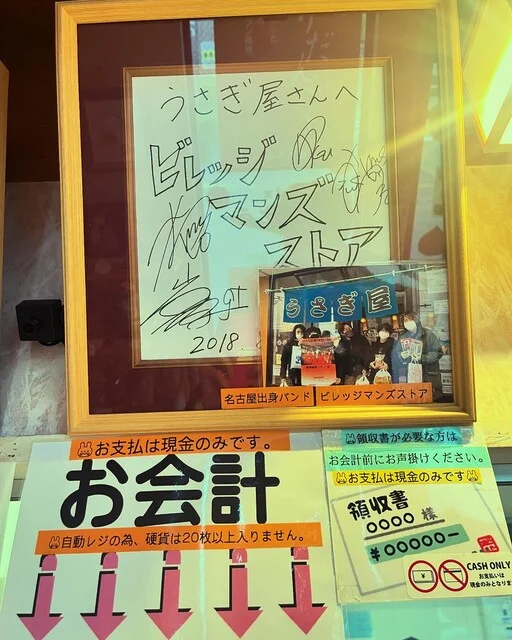 うさぎ屋さんへ
ビレッジ
マンズ
ストア
2018.
うさぎ屋
名古屋出身バンド ビレッジマンズストア
お支払は現金のみです。
お会計
自動レジの為、硬貨は20枚以上入りません。
領収書が必要な方は
お会計前にお声掛けください。
お支払は現金のみです
領収書
○○○○ 様
¥○○○○○ー
CASH ONLY
お支払いは
現金のみとなりま